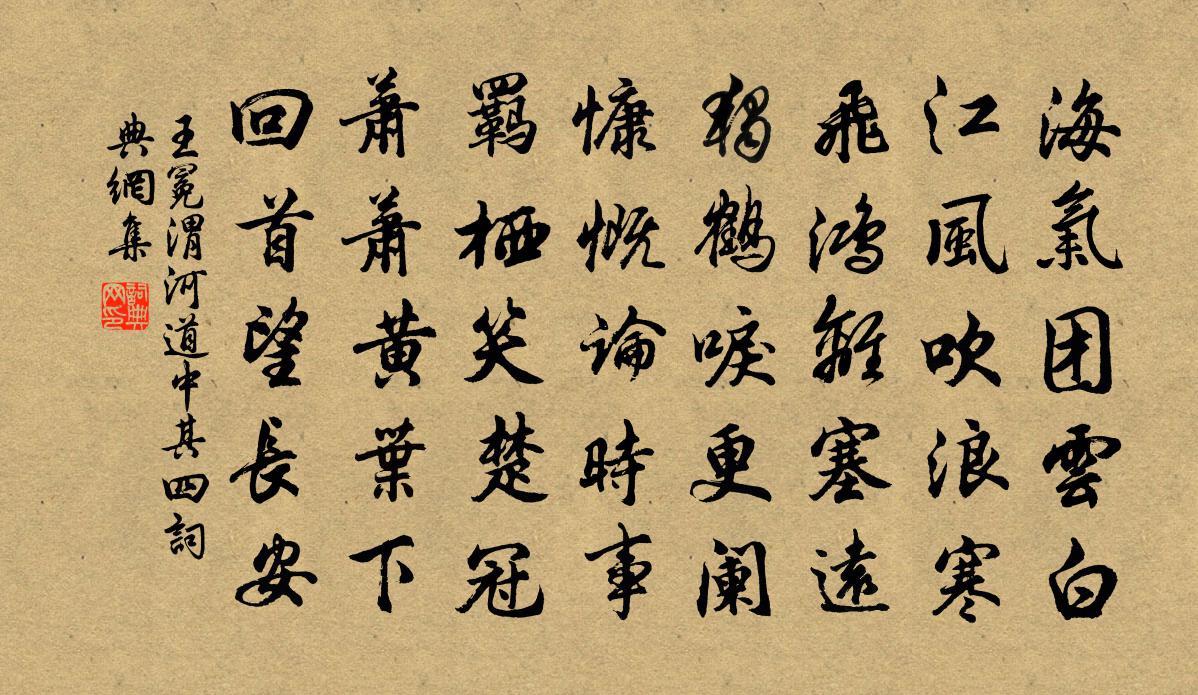 海氣团雲白
江風吹浪寒
飛鴻離塞遠
獨鶴唳更闌
慷慨論時事
羈栖笑楚冠
蕭蕭黃葉下
回首望長安
王冕渭河道中其四詞
典網集
詞典
网印